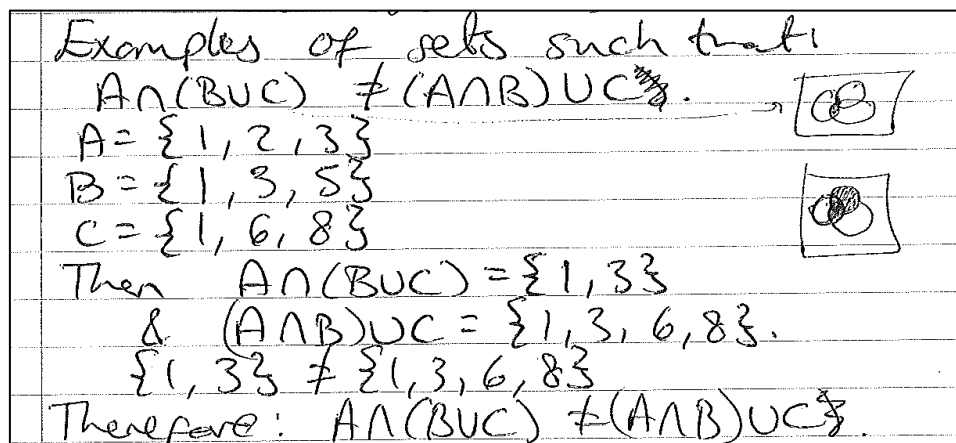 Examples of sets such that:
A∩(B∪C) ≠ (A∩B)∪C.
A = {1, 2, 3}
B = {1, 3, 5}
C = {1, 6, 8}
Then A∩(B∪C) = {1, 3}
& (A∩B)∪C = {1, 3, 6, 8}.
{1, 3} ≠ {1, 3, 6, 8}
Therefore: A∩(B∪C) ≠ (A∩B)∪C.